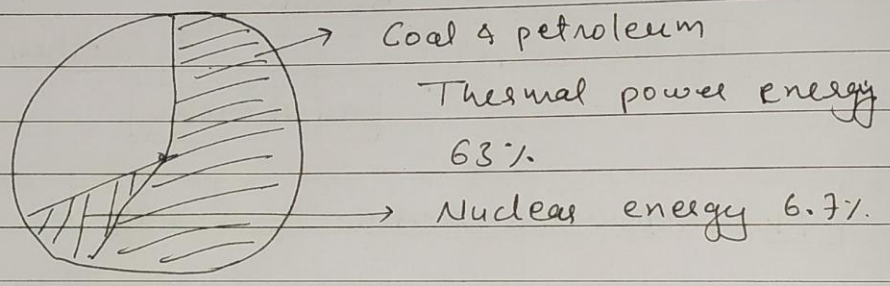 Coal & petroleum
Thermal power energy
63%.
Nuclear energy 6.7%.